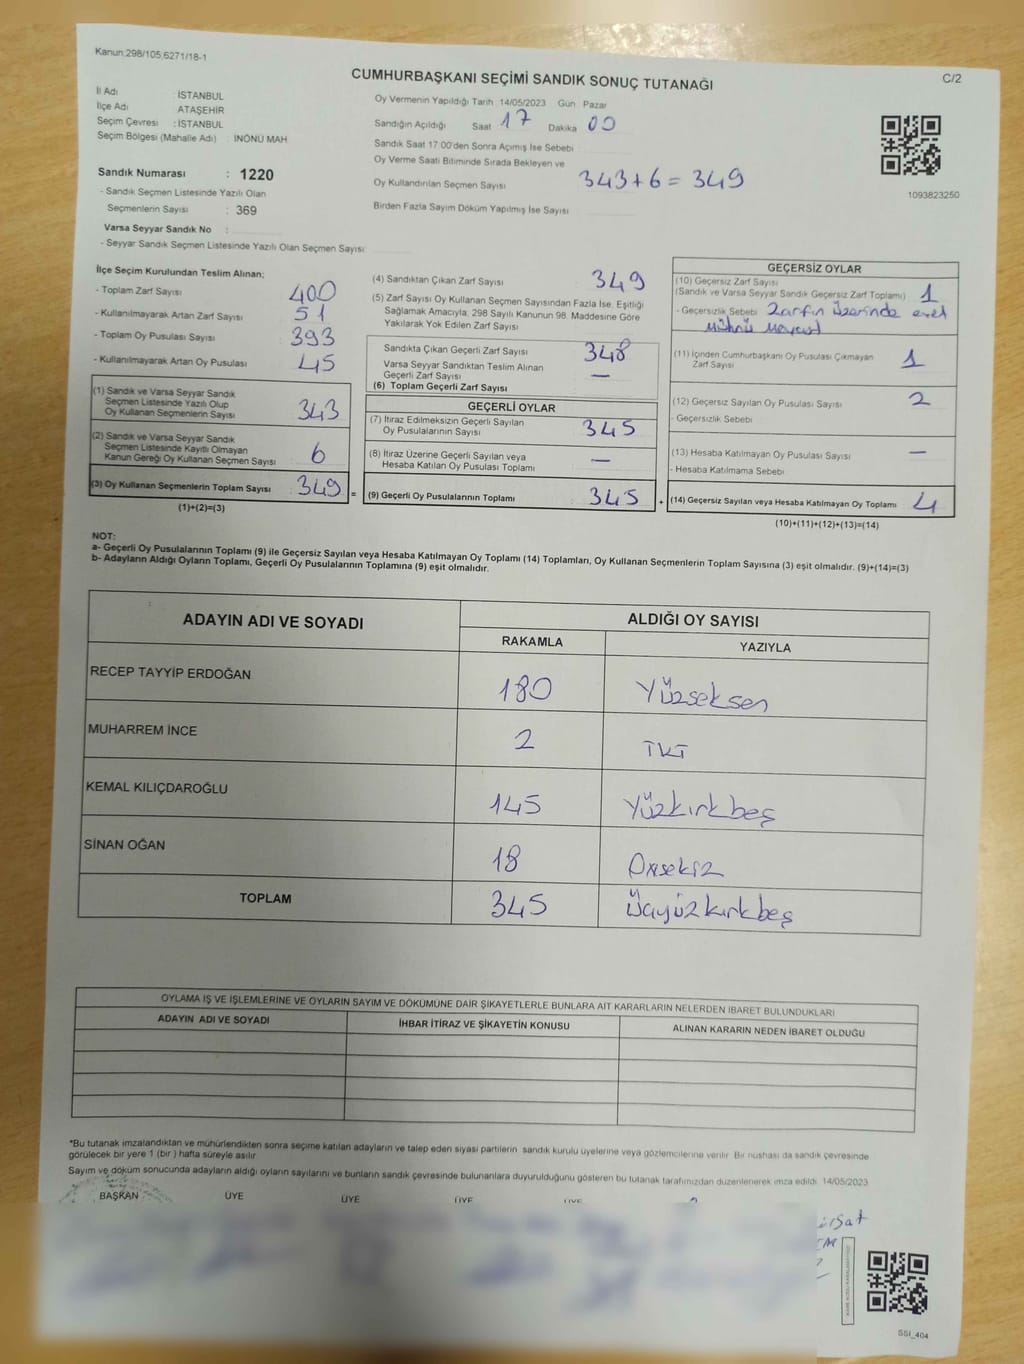 Kanun:298/105;6271/18-1
C/2
CUMHURBAŞKANI SEÇİMİ SANDIK SONUÇ TUTANAĞI
İl Adı : İSTANBUL
İlçe Adı : ATAŞEHİR
Seçim Çevresi : İSTANBUL
Seçim Bölgesi (Mahalle Adı) : İNÖNÜ MAH.
Sandık Numarası : 1220
- Sandık Seçmen Listesinde Yazılı Olan
Seçmenlerin Sayısı : 369
Varsa Seyyar Sandık No :
- Seyyar Sandık Seçmen Listesinde Yazılı Olan Seçmen Sayısı:
Oy Vermenin Yapıldığı Tarih 14/05/2023 Gün Pazar
Sandığın Açıldığı Saat 17 Dakika 00
Sandık Saat 17.00'den Sonra Açımış İse Sebebi
Oy Verme Saati Bitiminde Sırada Bekleyen ve
Oy Kullandırılan Seçmen Sayısı 343+6=349
Birden Fazla Sayım Döküm Yapılmış İse Sayısı
1093823250
İlçe Seçim Kurulundan Teslim Alınan;
- Toplam Zarf Sayısı : 400
- Kullanılmayarak Artan Zarf Sayısı : 51
- Toplam Oy Pusulası Sayısı : 393
- Kullanılmayarak Artan Oy Pusulası : 45
(1) Sandık ve Varsa Seyyar Sandık
Seçmen Listesinde Yazılı Olup
Oy Kullanan Seçmenlerin Sayısı : 343
(2) Sandık ve Varsa Seyyar Sandık
Seçmen Listesinde Kayıtlı Olmayan
Kanun Gereği Oy Kullanan Seçmen Sayısı : 6
(3) Oy Kullanan Seçmenlerin Toplam Sayısı : 349 =
(1)+(2)=(3)
(4) Sandıktan Çıkan Zarf Sayısı : 349
(5) Zarf Sayısı Oy Kullanan Seçmen Sayısından Fazla İse, Eşitliği
Sağlamak Amacıyla, 298 Sayılı Kanunun 98. Maddesine Göre
Yakılarak Yok Edilen Zarf Sayısı
Sandıkta Çıkan Geçerli Zarf Sayısı : 348
Varsa Seyyar Sandıktan Teslim Alınan
Geçerli Zarf Sayısı : —
(6) Toplam Geçerli Zarf Sayısı
GEÇERLİ OYLAR
(7) İtiraz Edilmeksizin Geçerli Sayılan
Oy Pusulalarının Sayısı : 345
(8) İtiraz Üzerine Geçerli Sayılan veya
Hesaba Katılan Oy Pusulası Toplamı : —
(9) Geçerli Oy Pusulalarının Toplamı : 345 +
GEÇERSİZ OYLAR
(10) Geçersiz Zarf Sayısı
(Sandık ve Varsa Seyyar Sandık Geçersiz Zarf Toplamı) : 1
- Geçersizlik Sebebi : Zarfın üzerinde evet
mührü mevcut
(11) İçinden Cumhurbaşkanı Oy Pusulası Çıkmayan
Zarf Sayısı : 1
(12) Geçersiz Sayılan Oy Pusulası Sayısı : 2
- Geçersizlik Sebebi :
(13) Hesaba Katılmayan Oy Pusulası Sayısı : —
- Hesaba Katılmama Sebebi :
(14) Geçersiz Sayılan veya Hesaba Katılmayan Oy Toplamı : 4
(10)+(11)+(12)+(13)=(14)
NOT:
a- Geçerli Oy Pusulalarının Toplamı (9) ile Geçersiz Sayılan veya Hesaba Katılmayan Oy Toplamı (14) Toplamları, Oy Kullanan Seçmenlerin Toplam Sayısına (3) eşit olmalıdır. (9)+(14)=(3)
b- Adayların Aldığı Oyların Toplamı, Geçerli Oy Pusulalarının Toplamına (9) eşit olmalıdır.
ADAYIN ADI VE SOYADI
ALDIĞI OY SAYISI
RAKAMLA YAZIYLA
RECEP TAYYİP ERDOĞAN 180 Yüzseksen
MUHARREM İNCE 2 İki
KEMAL KILIÇDAROĞLU 145 Yüzkırkbeş
SİNAN OĞAN 18 Onsekiz
TOPLAM 345 Üçyüzkırkbeş
OYLAMA İŞ VE İŞLEMLERİNE VE OYLARIN SAYIM VE DÖKÜMÜNE DAİR ŞİKAYETLERLE BUNLARA AİT KARARLARIN NELERDEN İBARET BULUNDUKLARI
ADAYIN ADI VE SOYADI İHBAR İTİRAZ VE ŞİKAYETİN KONUSU ALINAN KARARIN NEDEN İBARET OLDUĞU
*Bu tutanak imzalandıktan ve mühürlendikten sonra seçime katılan adayların ve talep eden siyasi partilerin sandık kurulu üyelerine veya gözlemcilerine verilir. Bir nüshası da sandık çevresinde
görülecek bir yere 1 (bir ) hafta süreyle asılır
Sayım ve döküm sonucunda adayların aldığı oyların sayılarını ve bunların sandık çevresinde bulunanlara duyurulduğunu gösteren bu tutanak tarafımızdan düzenlenerek imza edildi. 14/05/2023
BAŞKAN ÜYE ÜYE ÜYE ÜYE
SSİ_404